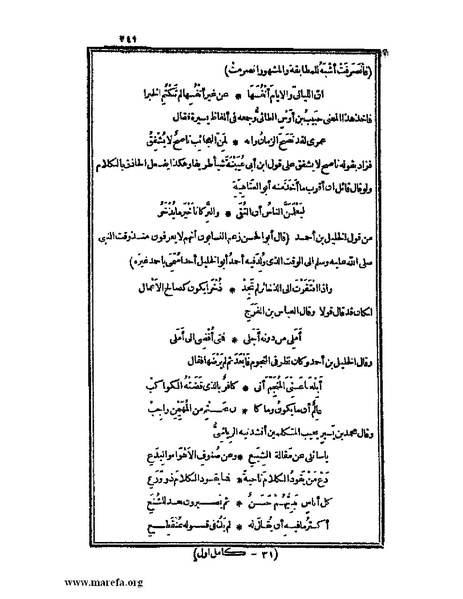 ٢٤١
(فانصرفت أشبه للمطابقة والمشهور انصرمت)
ان الليالى والايام أنفسها * عن غير أنفسها لم تكتم الخبرا
فاخذ هذا المعنى حبيب بن أوس الطائى وجمعه فى ألفاظ يسيرة فقال
عمرى لقد نصح الزمان وانه * لمن العجائب ناصح لا يشفق
فزاد بقوله ناصح لا يشفق على قول ابن أبى عيينة شيأ طريفا وهكذا يفعل الحاذق بالكلام
ولو قال قائل ان أقرب ما أخذ منه أبو العتاهية
ليعلمن الناس أن التقى * والبر كانا خير ما يذخر
من قول الخليل بن أحمد (قال أبو الحسن زعم النسابون أنهم لا يعرفون منذ وقت النبى
صلى الله عليه وسلم الى الوقت الذى ولد فيه أحمد أبو الخليل أحدا سمى باحمد غيره)
واذا افتقرت الى الذخائر لم تجد * ذخرا يكون كصالح الأعمال
لكان قد قال قولا وقال العباس بن الفرج
أملى من دونه أجلى * فتى أفضى الى أملى
وقال الخليل بن أحمد وكان نظر فى النجوم فابعد ثم لم يرضها فقال
أبلغا عنى المنجم أنى * كافر بالذى قضته الكواكب
عالم أن ما يكون وما كا * ن بحتم من المهيمن واجب
وقال محمد بن يسير يعيب المتكلمين أنشدنيه الرياشى
يا سائلى عن مقالة الشيع * وعن صنوف الاهواء والبدع
دع من يقود الكلام ناحية * فما يقود الكلام ذو ورع
كل أناس بديهم حسن * ثم يصيرون بعد للشنع
أكثر ما فيه أن يقال له * لم يك فى قوله بمنقطع
(٣١ - كامل اول)
www.marefa.org